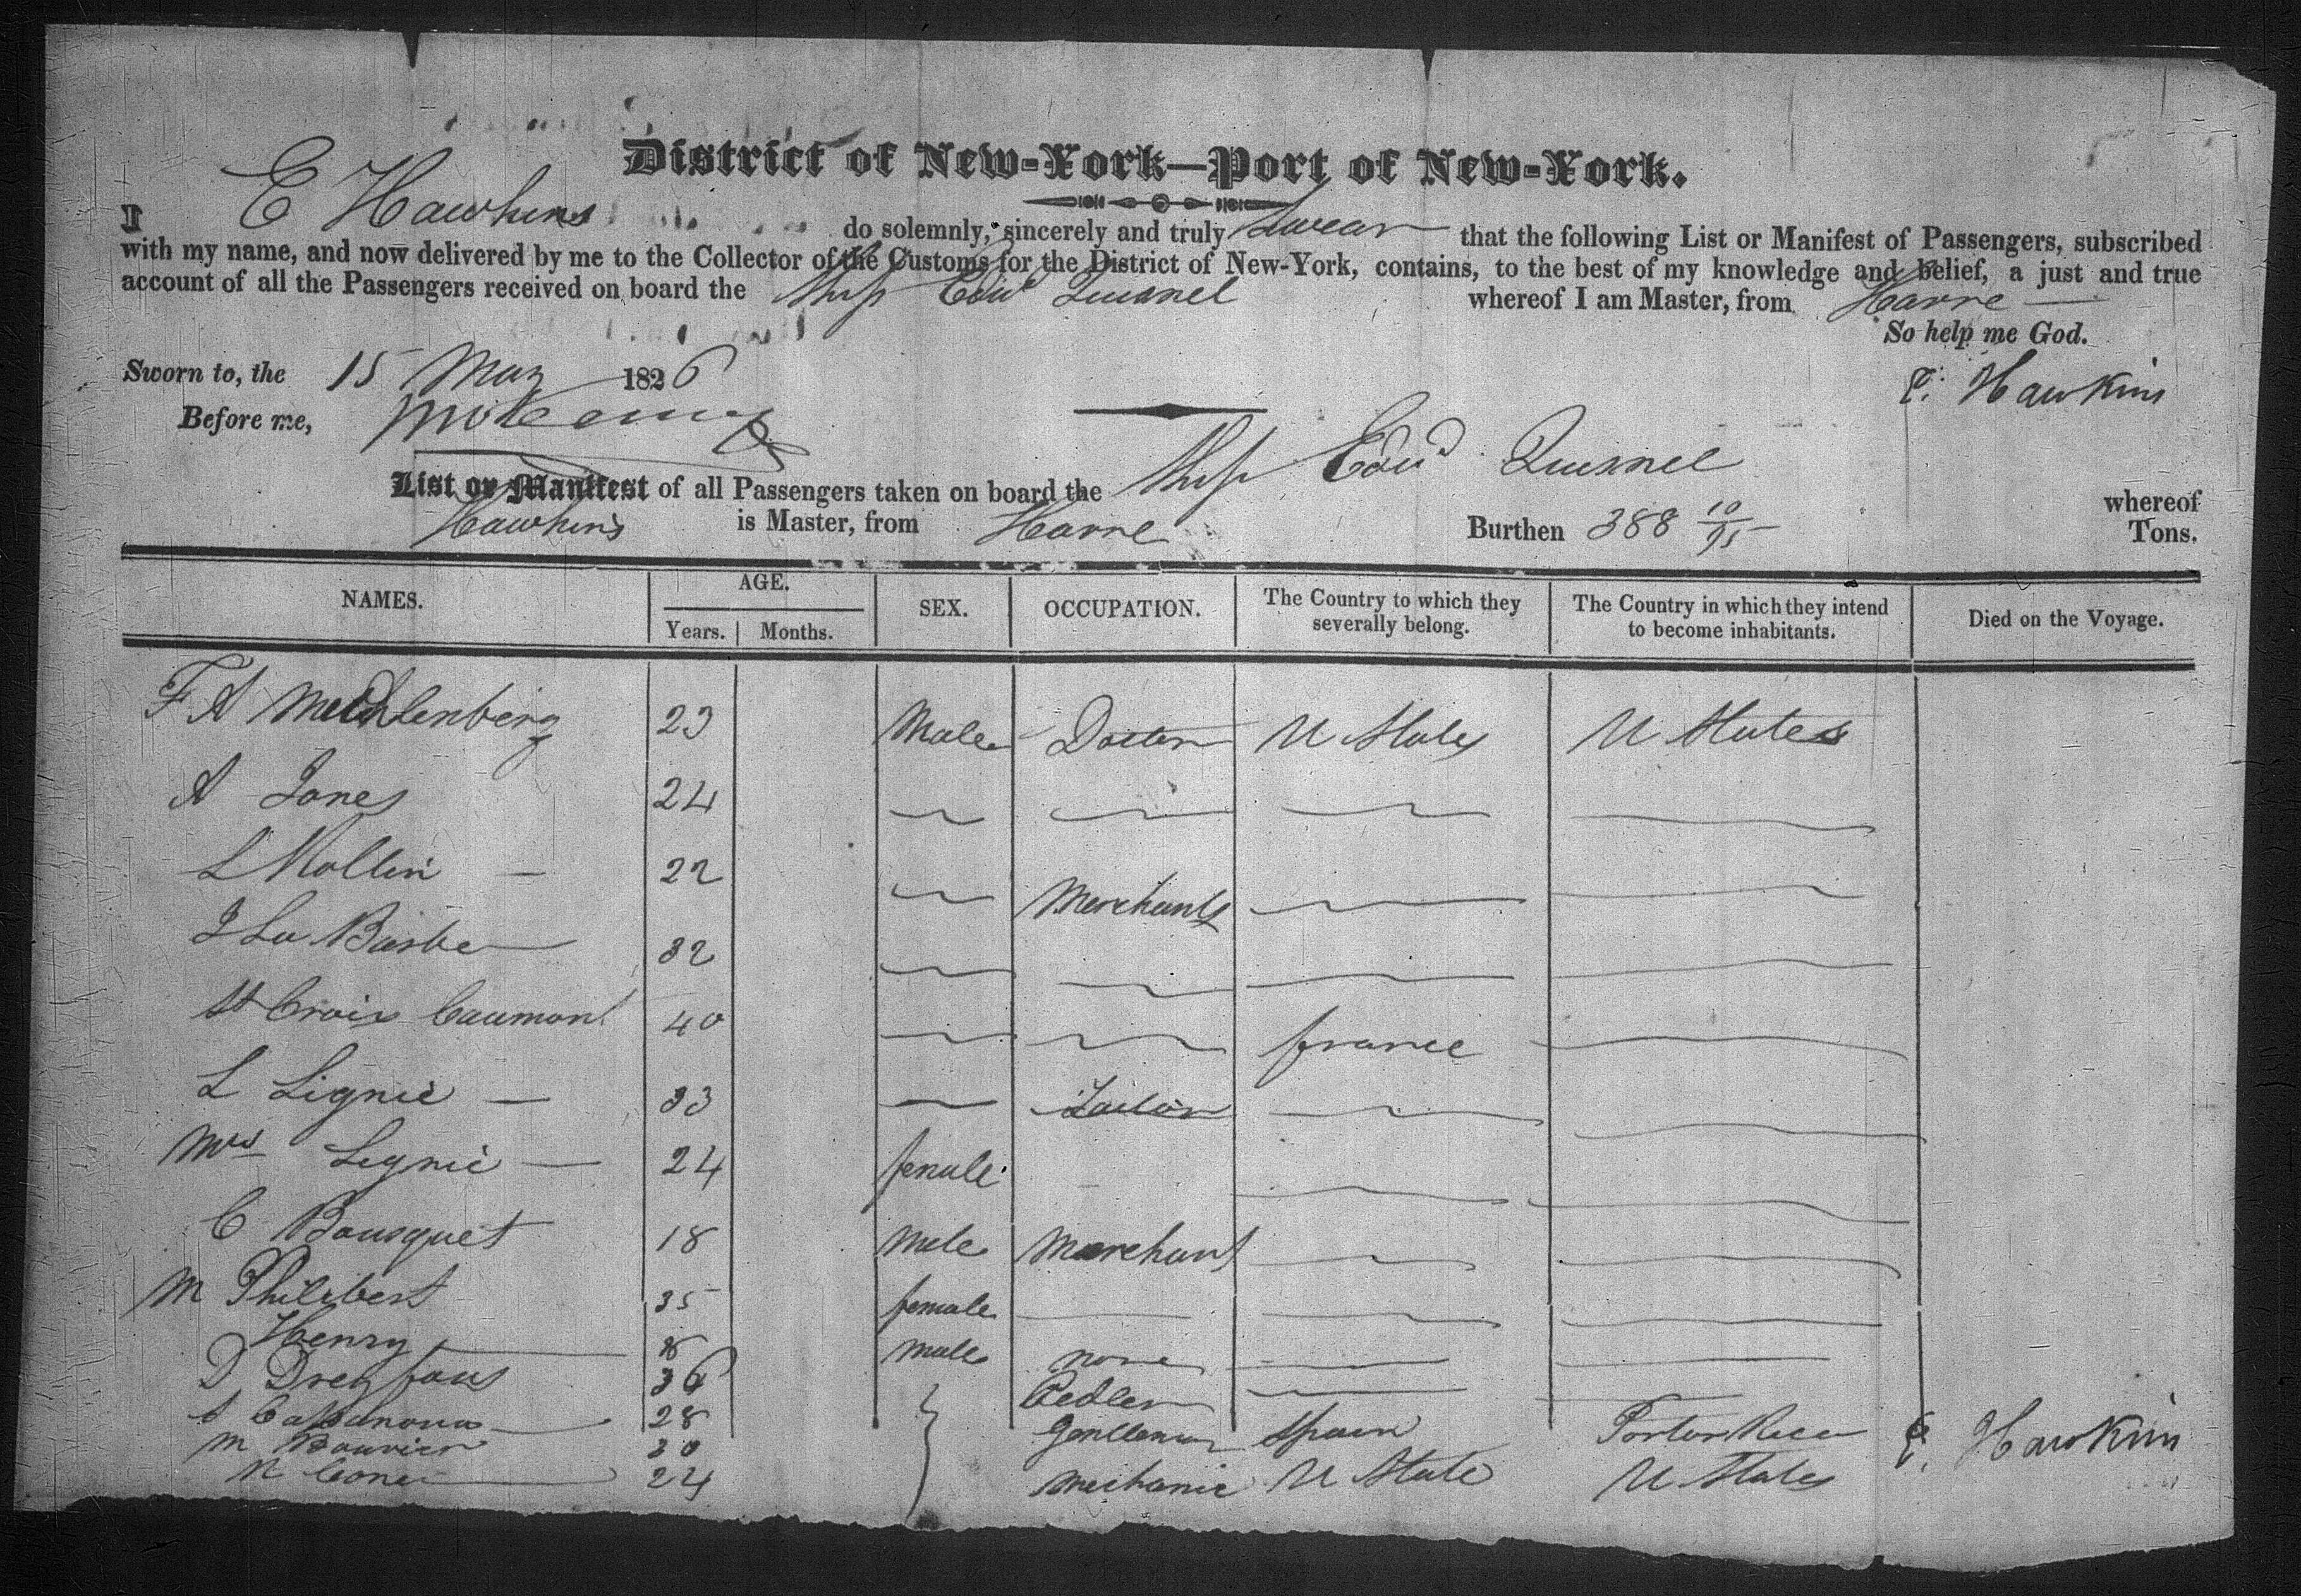 District of New-York—Port of New-York.
I E Hawkins do solemnly, sincerely and truly Swear that the following List or Manifest of Passengers, subscribed
with my name, and now delivered by me to the Collector of the Customs for the District of New-York, contains, to the best of my knowledge and belief, a just and true
account of all the Passengers received on board the Ship Edwd Quesnel whereof I am Master, from Havre
So help me God.
Sworn to, the 15 May 1826
E. Hawkins
Before me,
List or Manifest of all Passengers taken on board the Ship Edwd Quesnel whereof
Hawkins is Master, from Havre Burthen 388 10/95 Tons.
NAMES. AGE. Years. Months. SEX. OCCUPATION. The Country to which they severally belong. The Country in which they intend to become inhabitants. Died on the Voyage.
F A Mechlenberg 23 Male Doctor U States U States
A Jones 24
L Mollin 22 Merchants
J La Barbe 32
St Croix Caumont 40 france
L Lignie 33 Tailor
Mrs Lignie 24 female
C Bousquet 18 Male Merchant
M Philibert 35 female
Henry 8 Male none
D Dreyfous 36 Pedler
A Cassanova 28 Gentleman Spain Porto Rico
M Bouvier 30
N Cone 24 Mechanic U State U States
E. Hawkins